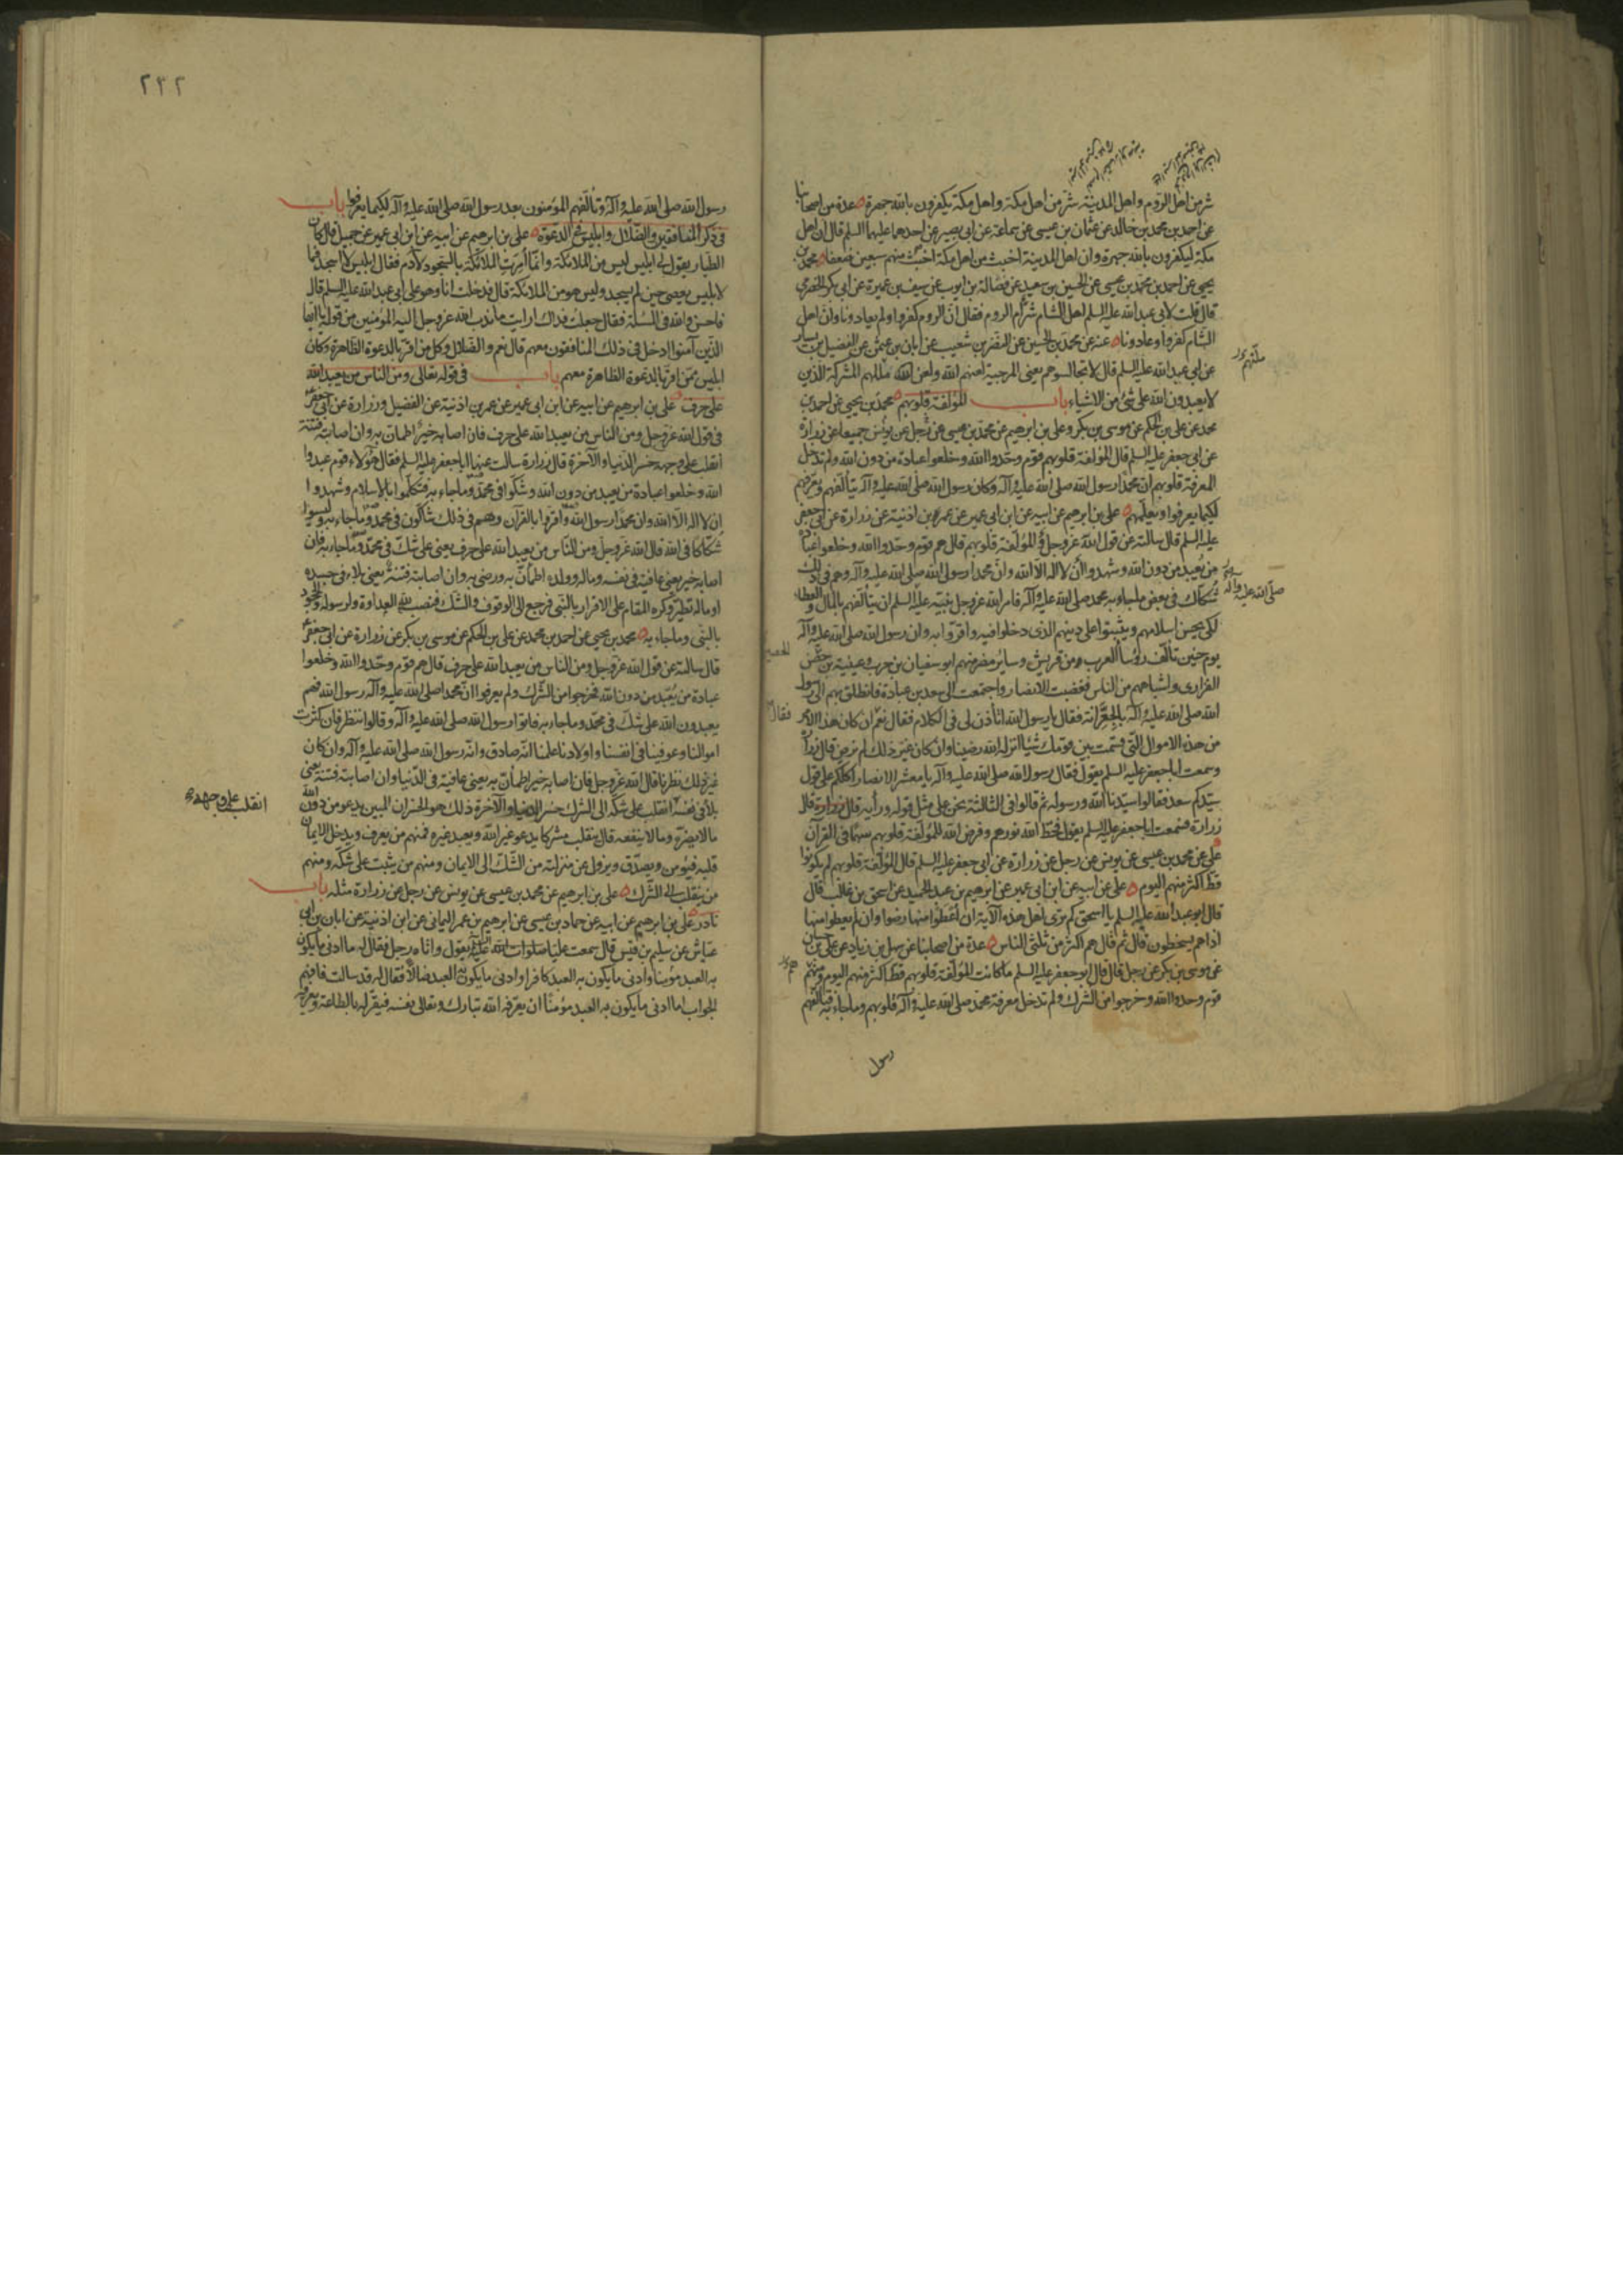 شر من اهل الروم واهل المدينة شر من اهل مكة واهل مكة يكفرون بالله جهرة عدة من اصحابنا
عن احمد بن محمد بن خالد عن عثمان بن عيسى عن سماعة عن ابى بصير عن احدهما عليهما السلم قال ان اهل
مكة ليكفرون بالله جهرة وان اهل المدينة اخبث من اهل مكة اخبث منهم سبعين ضعفا محمد بن
يحيى عن احمد بن محمد بن عيسى عن الحسين بن سعيد عن فضالة بن ايوب عن سيف بن عميرة عن ابى بكر الحضرمى
قال قلت لابى عبد الله عليه السلم اهل الشام شر ام الروم فقال ان الروم كفروا ولم يعادونا وان اهل
الشام كفروا وعادونا عنه عن محمد بن الحسين عن النضر بن شعيب عن ابان بن عثمن عن الفضيل بن يسار
عن ابى عبد الله عليه السلم قال لا تجالسوهم يعنى المرجئة لعنهم الله ولعن الله مللهم المشركة الذين
لا يعبدون الله على شئ من الاشياء باب المؤلفة قلوبهم محمد بن يحيى عن احمد بن
محمد عن على بن الحكم عن موسى بن بكر وعلى بن ابرهيم عن محمد بن عيسى عن رجل عن يونس جميعا عن زرارة
عن ابى جعفر عليه السلم قال المؤلفة قلوبهم قوم وحدوا الله وخلعوا عبادة من دون الله ولم تدخل
المعرفة قلوبهم ان محمدا رسول الله صلى الله عليه وآله وكان رسول الله صلى الله عليه وآله يتألفهم ويعرفهم
لكيما يعرفوا ويعلمهم على بن ابرهيم عن ابيه عن ابن ابى عمير عن عمر بن اذنية عن زرارة عن ابى جعفر
عليه السلم قال سالته عن قول الله عز وجل والمؤلفة قلوبهم قال هم قوم وحدوا الله وخلعوا عبادة
من يعبد من دون الله وشهدوا ان لا اله الا الله وان محمدا رسول الله صلى الله عليه وآله وهم فى ذلك
شكاك فى بعض ما جاء به محمد صلى الله عليه وآله فامر الله عز وجل نبيه عليه السلم ان يتألفهم بالمال والعطاء
لكى يحسن اسلامهم ويثبتوا على دينهم الذى دخلوا فيه واقروا به وان رسول الله صلى الله عليه وآله
يوم حنين تألف رؤسا العرب ومن قريش وسائر مضر منهم ابو سفيان بن حرب وعيينة بن حصن
الفزارى واشباههم من الناس فغضبت الانصار واجتمعت الى سعد بن عبادة فانطلق بهم الى رسول
الله صلى الله عليه وآله بالجعرانة فقال يا رسول الله اتأذن لى فى الكلام فقال نعم ان كان هذا الامر
من هذه الاموال التى قسمت بين قومك شيئا انزله الله رضينا وان كان غير ذلك لم نرض قال زرارة
وسمعت ابا جعفر عليه السلم يقول فقال رسول الله صلى الله عليه وآله يا معشر الانصار اكلكم على قول
سيدكم سعد فقالوا سيدنا الله ورسوله ثم قالوا فى الثالثة نحن على مثل قوله ورأيه قال زرارة
فسمعت ابا جعفر عليه السلم يقول فحط الله نورهم وفرض الله للمؤلفة قلوبهم سهما فى القرآن
على عن محمد بن عيسى عن يونس عن رجل عن زرارة عن ابى جعفر عليه السلم قال المؤلفة قلوبهم لم يكونوا
قط اكثر منهم اليوم على عن ابيه عن ابن ابى عمير عن ابرهيم بن عبد الحميد عن اسحق بن غالب قال
قال ابو عبد الله عليه السلم يا اسحق كم ترى اهل هذه الآية ان اعطوا منها رضوا وان لم يعطوا منها
اذا هم يسخطون قال ثم قال هم اكثر من ثلثى الناس عدة من اصحابنا عن سهل بن زياد عن على بن حسان
عن موسى بن بكر عن رجل قال قال ابو جعفر عليه السلم ما كانت المؤلفة قلوبهم قط اكثر منهم اليوم وهم
قوم وحدوا الله وخرجوا من الشرك ولم تدخل معرفة محمد صلى الله عليه وآله قلوبهم وما جاء به فتألفهم
رسول
ملتهم
صلى الله عليه وآله
فقال
٢٢٢
رسول الله صلى الله عليه وآله وتألفهم المؤمنون بعد رسول الله صلى الله عليه وآله لكيما يعرفوا باب
فى ذكر المنافقين والضلال وابليس فى الدعوة على بن ابرهيم عن ابيه عن ابن ابى عمير عن جميل قال كان
الطيار يقول لى ابليس ليس من الملائكة وانما امرت الملائكة بالسجود لآدم فقال ابليس لا اسجد فما
لابليس يعصى حين لم يسجد وليس هو من الملائكة قال فدخلت انا وهو على ابى عبد الله عليه السلم قال
فاحسن والله فى المسئلة فقال جعلت فداك ارايت ما ندب الله عز وجل اليه المؤمنين من قوله يا ايها
الذين آمنوا ادخل فى ذلك المنافقون معهم قال نعم والضلال وكل من اقر بالدعوة الظاهرة وكان
ابليس ممن اقر بالدعوة الظاهرة معهم باب فى قوله تعالى ومن الناس من يعبد الله
على حرف على بن ابرهيم عن ابيه عن ابن ابى عمير عن عمر بن اذنية عن الفضيل وزرارة عن ابى جعفر
فى قول الله عز وجل ومن الناس من يعبد الله على حرف فان اصابه خير اطمان به وان اصابته فتنة
انقلب على وجهه خسر الدنيا والآخرة قال زرارة سالت عنها ابا جعفر عليه السلم فقال هؤلاء قوم عبدوا
الله وخلعوا عبادة من يعبد من دون الله وشكوا فى محمد وما جاء به فتكلموا بالاسلام وشهدوا
ان لا اله الا الله وان محمدا رسول الله واقروا بالقرآن وهم فى ذلك شاكون فى محمد وما جاء به وليسوا
شكاكا فى الله قال الله عز وجل ومن الناس من يعبد الله على حرف يعنى على شك فى محمد وما جاء به فان
اصابه خير يعنى عافية فى نفسه وماله وولده اطمأن به ورضى به وان اصابته فتنة يعنى بلاء فى جسده
او ماله تطير وكره المقام على الاقرار بالنبى فرجع الى الوقوف والشك فنصب لله العداوة ولرسوله والجحود
بالنبى وما جاء به محمد بن يحيى عن احمد بن محمد عن على بن الحكم عن موسى بن بكر عن زرارة عن ابى جعفر
قال سالته عن قول الله عز وجل ومن الناس من يعبد الله على حرف قال هم قوم وحدوا الله وخلعوا
عبادة من يعبد من دون الله فخرجوا من الشرك ولم يعرفوا ان محمدا صلى الله عليه وآله رسول الله فهم
يعبدون الله على شك فى محمد وما جاء به فاتوا رسول الله صلى الله عليه وآله وقالوا ننظر فان كثرت
اموالنا وعوفينا فى انفسنا واولادنا علمنا انه صادق وانه رسول الله صلى الله عليه وآله وان كان
غير ذلك نظرنا قال الله عز وجل فان اصابه خير اطمأن به يعنى عافية فى الدنيا وان اصابته فتنة يعنى
بلاء فى نفسه انقلب على شكه الى الشرك خسر الدنيا والآخرة ذلك هو الخسران المبين يدعو من دون الله
ما لا يضره وما لا ينفعه قال ينقلب مشركا يدعو غير الله ويعبد غيره فمنهم من يعرف ويدخل الايمان
قلبه فيؤمن ويصدق ويزول عن منزلته من الشك الى الايمان ومنهم من يثبت على شكه ومنهم
من ينقلب الى الشرك على بن ابرهيم عن محمد بن عيسى عن يونس عن رجل عن زرارة مثله باب
نادر على بن ابرهيم عن ابيه عن حماد بن عيسى عن ابرهيم بن عمر اليمانى عن ابن اذنية عن ابان بن ابى
عياش عن سليم بن قيس قال سمعت عليا صلوات الله عليه يقول واتاه رجل فقال له ما ادنى ما يكون
به العبد مؤمنا وادنى ما يكون به العبد كافرا وادنى ما يكون به العبد ضالا فقال له قد سالت فافهم
الجواب اما ادنى ما يكون به العبد مؤمنا ان يعرفه الله تبارك وتعالى نفسه فيقر له بالطاعة ويعرفه
انقلب على وجهه